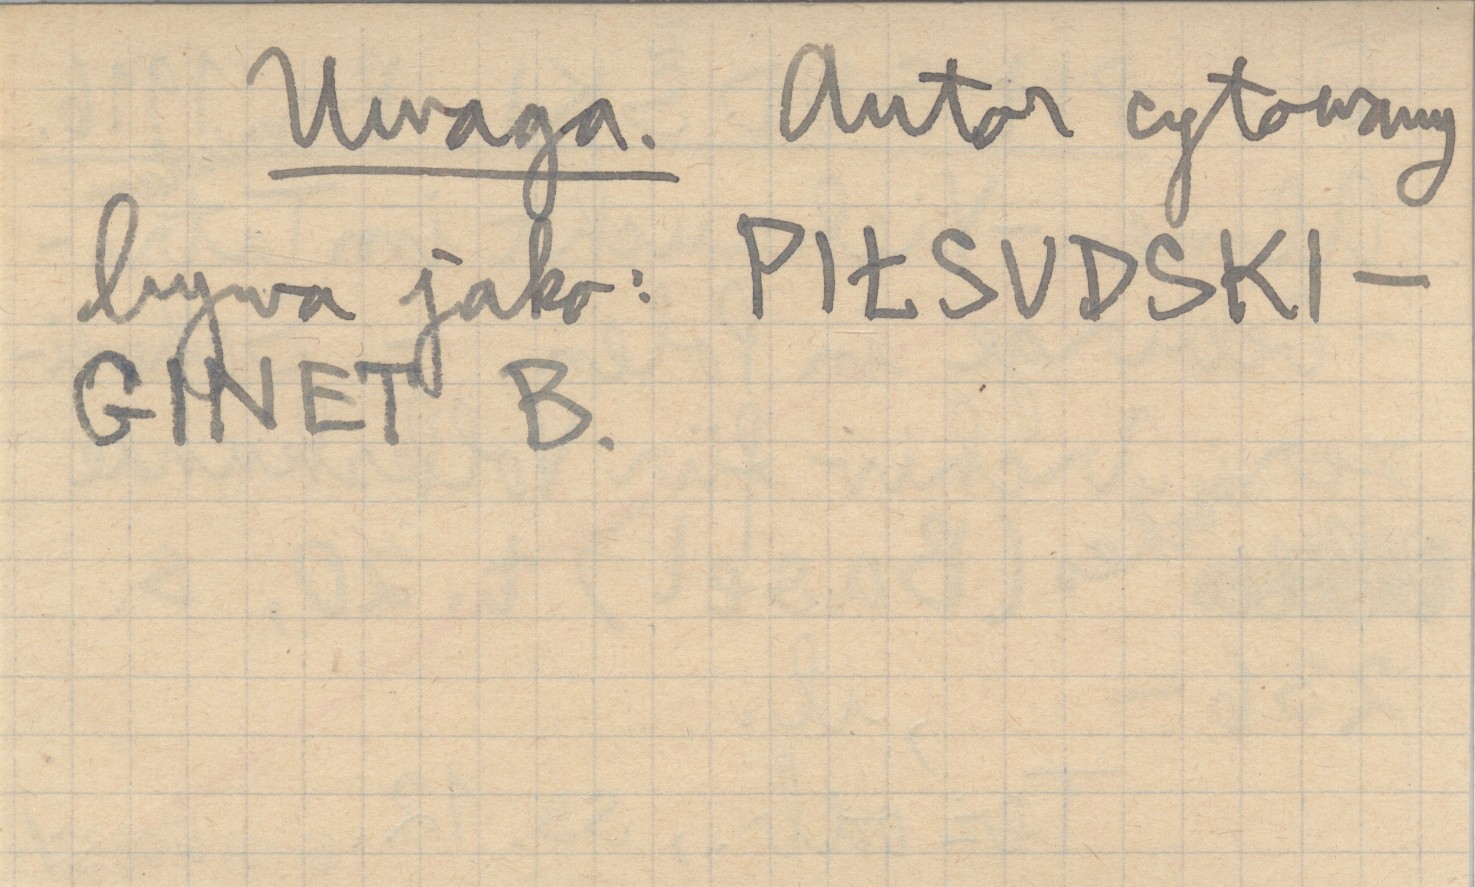 Uwaga. Autor cytowany
bywa jako: PIŁSUDSKI-
GINET B.